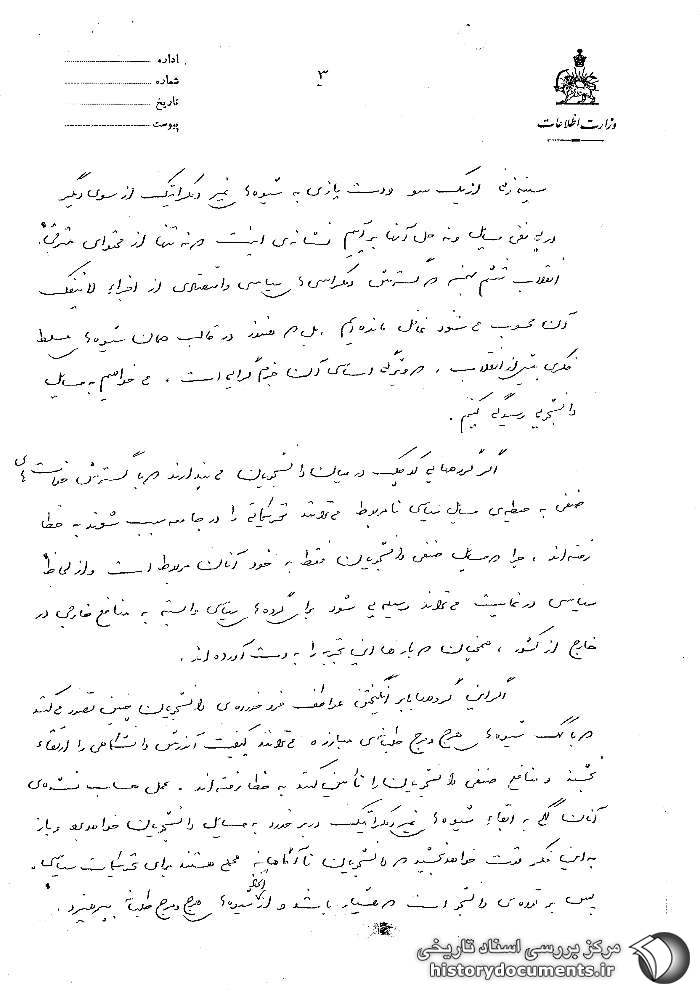 اداره
شماره
تاریخ
پیوست
۳
وزارت اطلاعات
سینه زنی از یک سو و دست یازی به شیوه‌های غیر دمکراتیک از سوی دیگر
در پی نفی مسایل و نه حل آنها برآییم نشانه‌ی اینست که نه تنها از محتوای مترقی
انقلاب ششم بهمن که گسترش دمکراسی‌های سیاسی و اقتصادی از اجزاء لاینفک
آن محسوب می شود غافل مانده‌ایم ، بل که هنوز در قالب همان شیوه‌های مسلط
فکری پیش از انقلاب ، که ویژگی اساسی آن جزم گرایی است ، می خواهیم به مسایل
دانشجویی رسیدگی کنیم .
اگر گروههایی کوچک در میان دانشجویان می پندارند که با گسترش خواست‌های
صنفی به حیطه‌ی مسایل سیاسی نامربوط می‌توانند تحریکاتی را در جامعه سبب شوند به خطا
رفته‌اند ، چرا که مسایل صنفی دانشجویان فقط به خود آنان مربوط است و از لحاظ
سیاسی در نهایت می‌تواند وسیله‌یی شود برای گروه‌های سیاسی وابسته به منافع خارجی در
خارج از کشور ، همچنان که بارها این تجربه را به دست آورده‌اند .
اگر این گروهها با برانگیختن عواطف فرو خورده‌ی دانشجویان چنین تصور می‌کنند
که با کمک شیوه‌های هرج و مرج طلبانه‌ی مبارزه می‌توانند کیفیت آموزش دانشگاهی را ارتقاء
بخشند و منافع صنفی دانشجویان را تأمین کنند به خطا رفته‌اند . عمل حساب نشده‌ی
آنان کمک به ابقاء شیوه‌های غیر دمکراتیک در برخورد به مسایل دانشجویان خواهد بود و باز
به این فکر قوت خواهد بخشید که دانشجویان ناآگاهانه محملی هستند برای تحریکات سیاسی .
پس بر توده‌ی دانشجو است که هشیار باشد و از شیوه‌های هرج و مرج طلبانه بپرهیزد .
مرکز بررسی اسناد تاریخی
historydocuments.ir